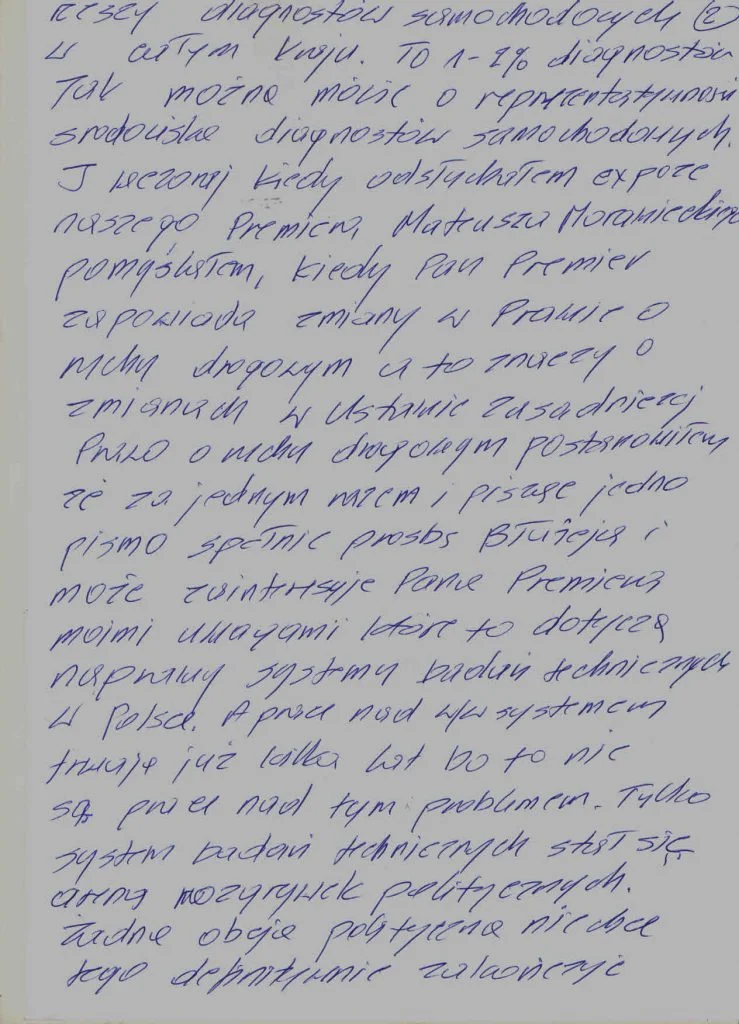 rzeszy diagnostów samochodowych (2)
w całym kraju. To 1-2% diagnostów
Tak można mówić o reprezentatywności
środowiska diagnostów samochodowych.
I wczoraj kiedy odsłuchałem expoze
naszego Premiera, Mateusza Morawieckiego
pomyślałem, kiedy Pan Premier
zapowiada zmiany w Prawie o
ruchu drogowym a to znaczy o
zmianach w Ustawie zasadniczej
Prawo o ruchu drogowym postanowiłem
że za jednym razem i pisząc jedno
pismo spełnię prośbę Błażeja i
może zainteresuje Pana Premiera
moimi uwagami które to dotyczą
naprawy systemu badań technicznych
w Polsce. A prace nad w/w systemem
trwają już kilka lat bo to nie
są prace nad tym problemem. Tylko
system badań technicznych stał się
areną rozgrywek politycznych.
Żadna opcja polityczna nie chce
tego definitywnie zakończyć